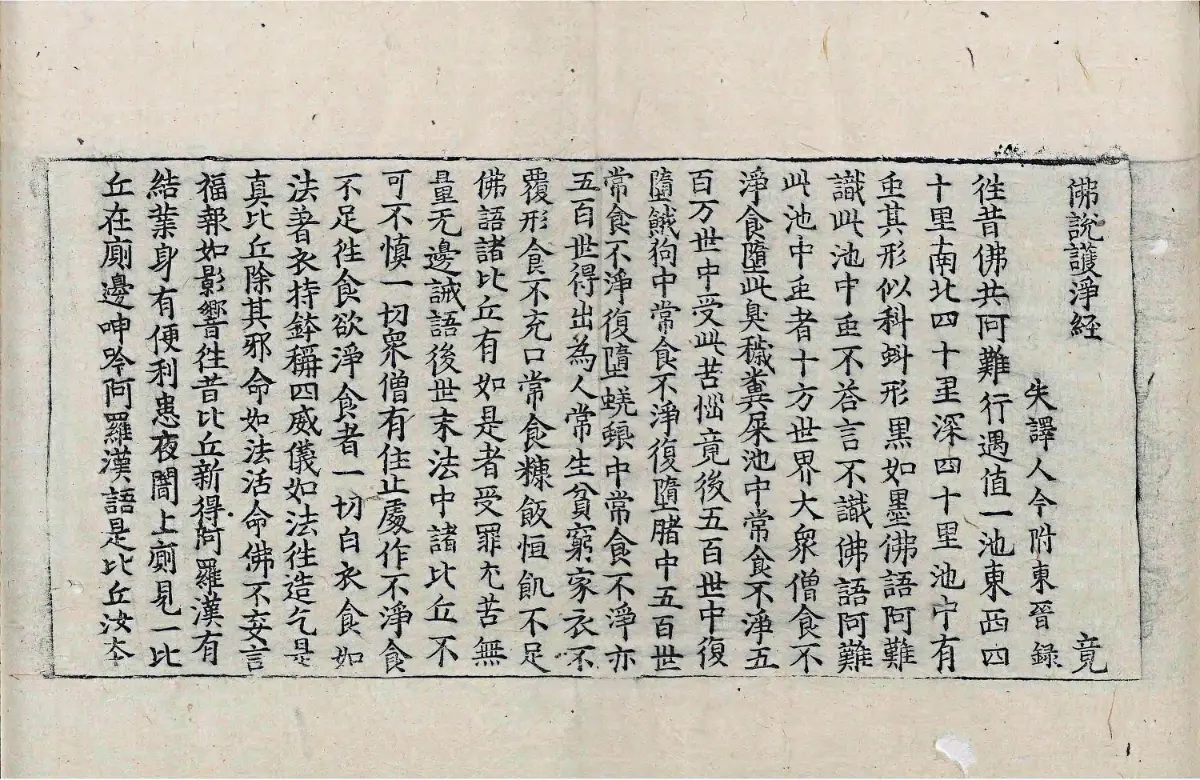 佛說護淨經 竟
失譯人今附東晉錄
徃昔佛共阿難行遇值一池東西四
十里南北四十里深四十里池中有
䖝其形似科蚪形黒如墨佛語阿難
識此池中䖝不荅言不識佛語阿難
此池中䖝者十方世界大衆僧食不
淨食墮此臭穢糞屎池中常食不淨五
百万世中受此苦惱竟後五百世中復
墮餓狗中常食不淨復墮猪中五百世
常食不淨復墮蜣蜋中常食不淨亦
五百世得出為人常生貧窮家衣不
覆形食不充口常食糠飯恒飢不足
佛語諸比丘有如是者受罪尤苦無
量无邊誡語後世末法中諸比丘不
可不慎一切衆僧有住止處作不淨食
不足徃食欲淨食者一切白衣食如
法著衣持鉢稱四威儀如法徃造乞是
真比丘除其邪命如法活命佛不妄言
福報如影響徃昔比丘新得阿羅漢有
結業身有便利患夜闇上廁見一比
丘在廁邊呻吟阿羅漢語是比丘汝夲